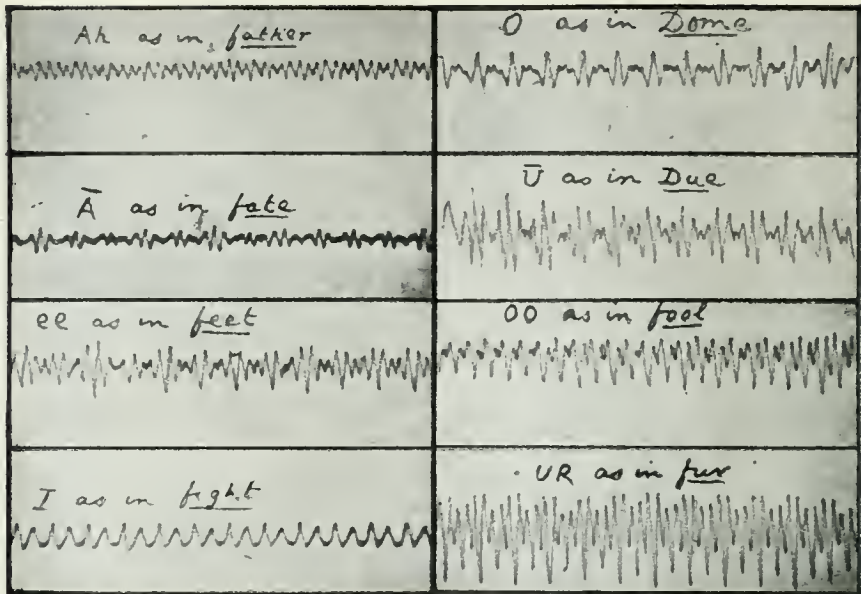 Ah as in father
Ā as in fate
ee as in feet
I as in fight
O as in Dome
Ū as in Due
OO as in fool
UR as in fur